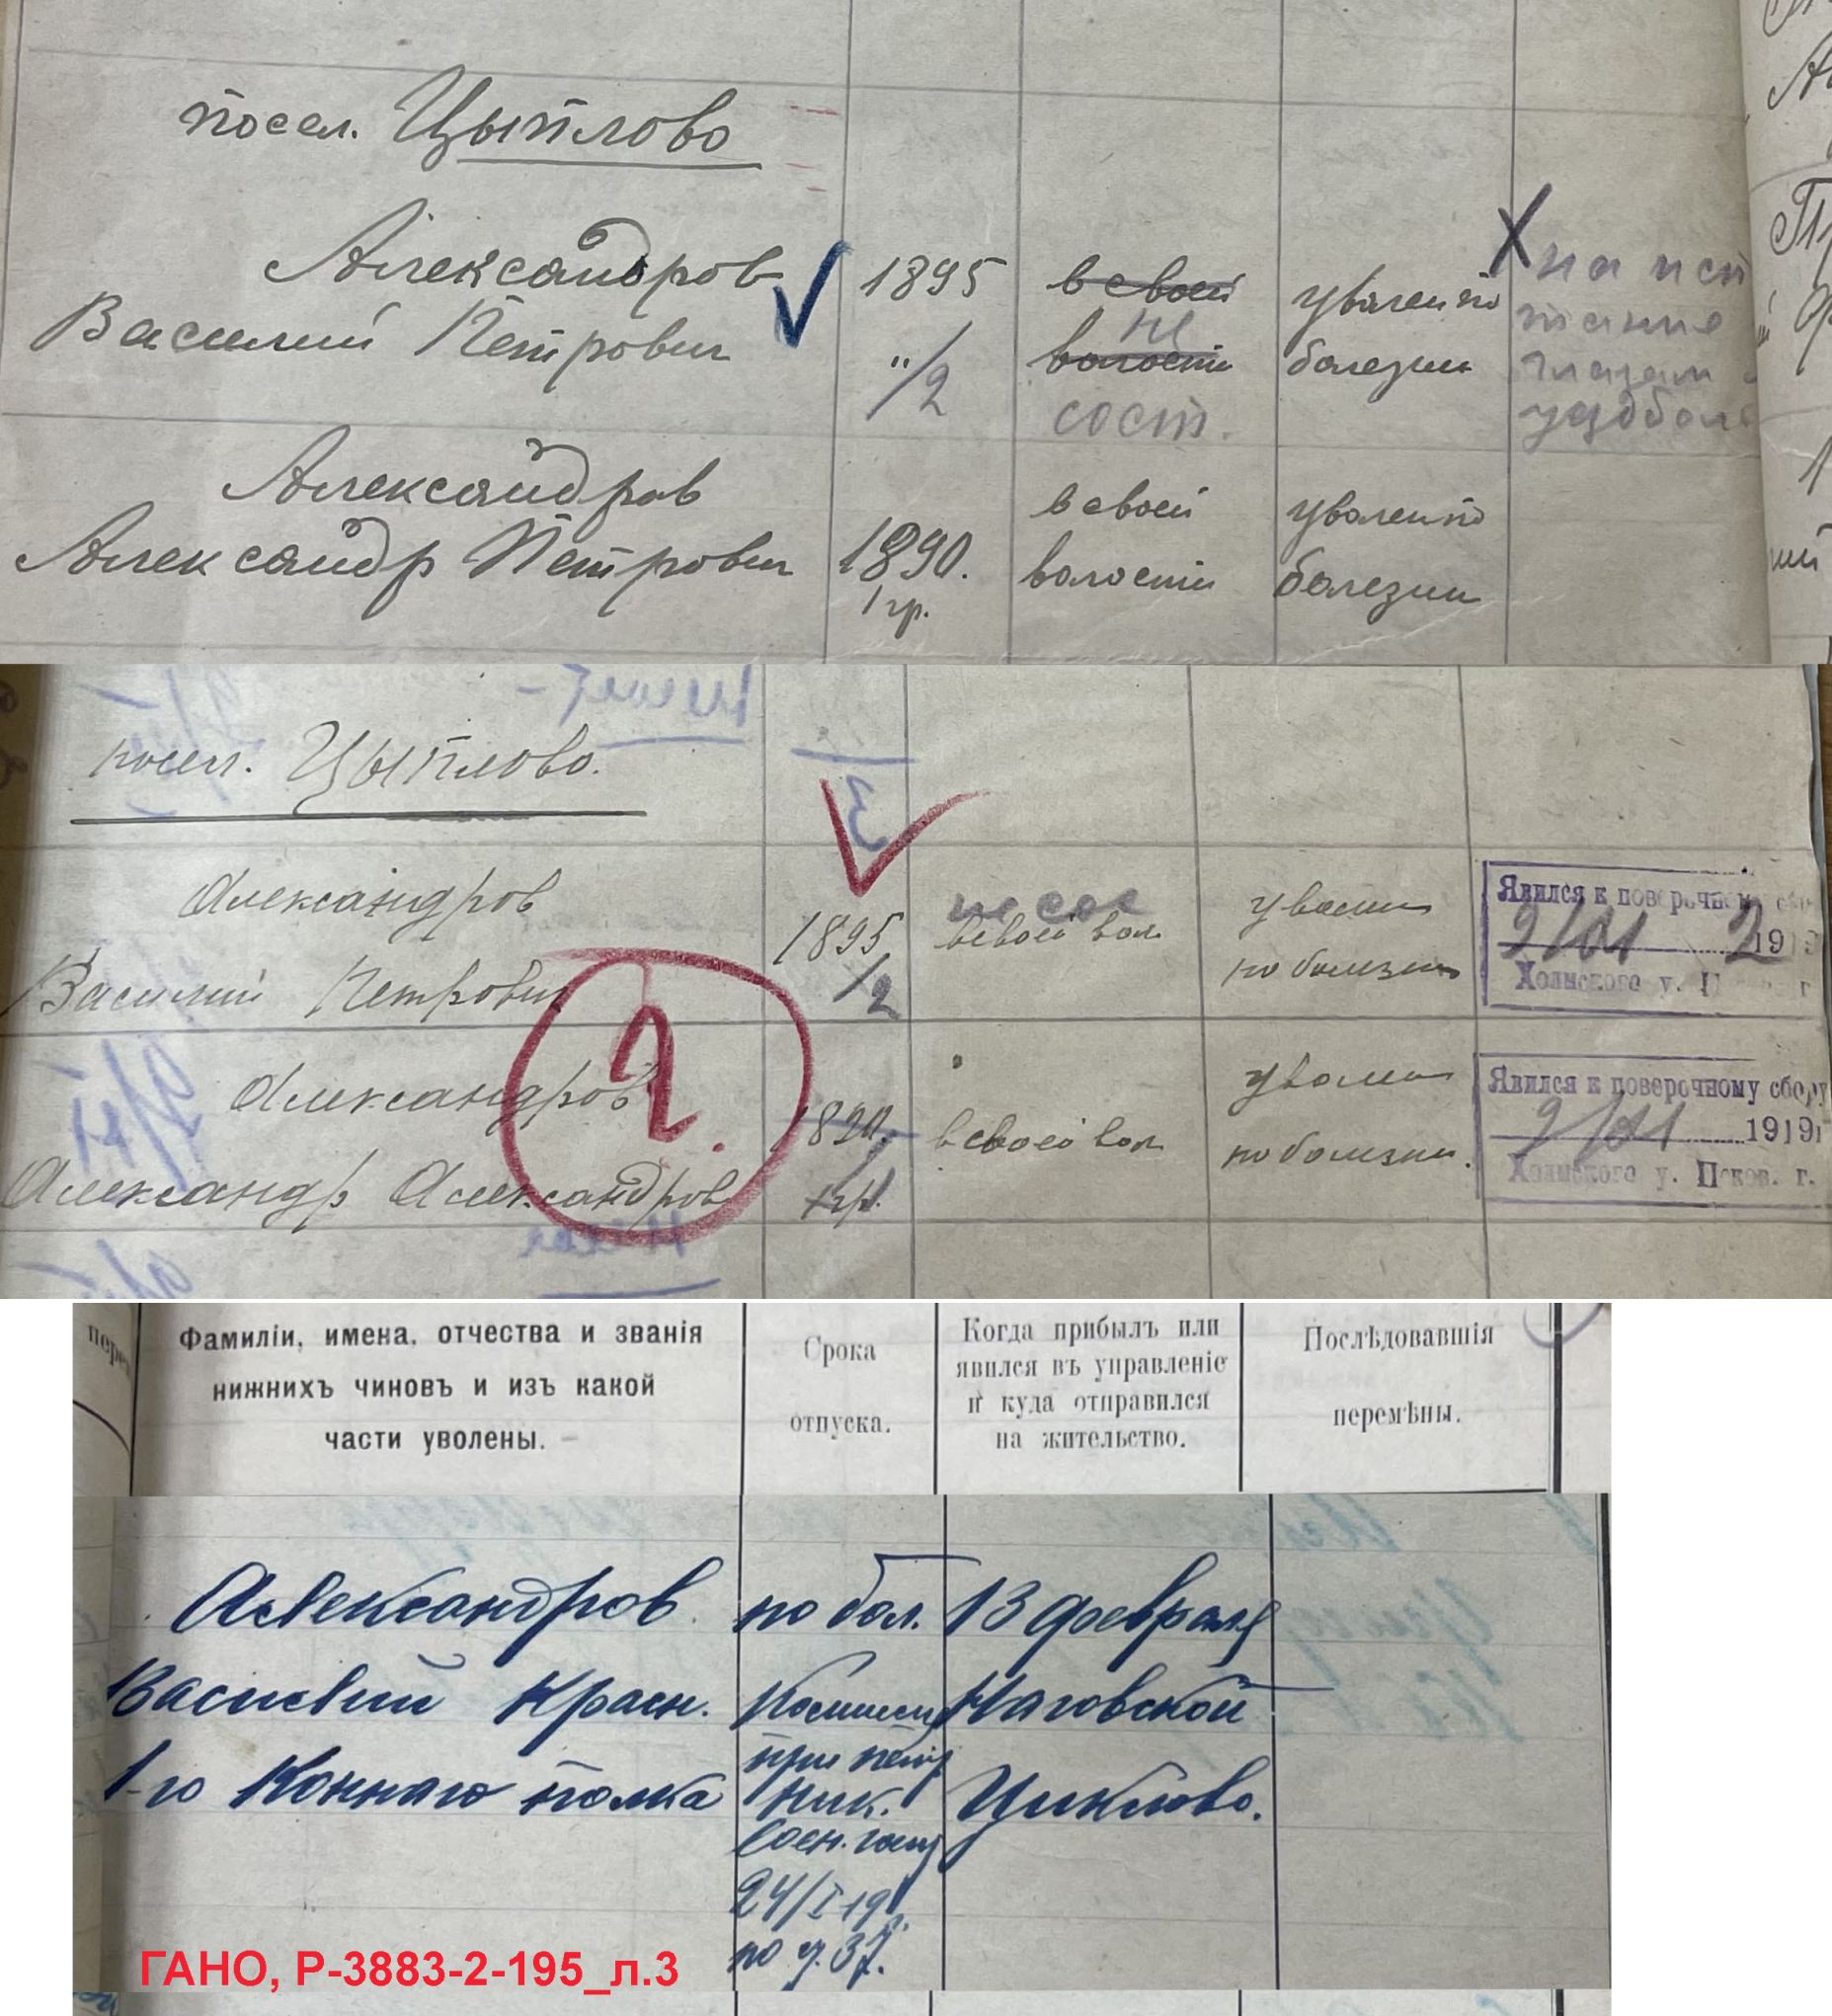 посел. Цыплово
Александров
Василий Петрович
1895
"/2
в своей
не
волости
сост.
уволен по
болезни
на исп
тание
глазам
уездбол
Александров
Александр Петрович
1890.
1 гр.
в своей
волости
уволен по
болезни
посел. Цыплово.
3
Александров
Василий Петрович
1895
/2
не сос
в своей вол.
уволен
по болезни
Явился к поверочном
9/VII 2 1919
Холмского у. П г
2.
Александров
Александр Александров
1890.
1 гр.
в своей вол
уволен
по болезни.
Явился к поверочному сбору
9/VII 1919г
Холмского у. Псков. г.
Фамиліи, имена, отчества и званія
нижнихъ чиновъ и изъ какой
части уволены.
Срока
отпуска.
Когда прибылъ или
явился въ управленіе
и куда отправился
на жительство.
Послѣдовавшія
перемѣны.
Александров
Василий Красн.
1-го Коннаго полка
по бол.
Комисси
при петр
Ник.
воен. госп
24/I 19 г.
по у. 37.
13 февраля
Наговской
Циклово.
ГАНО, Р-3883-2-195_л.3